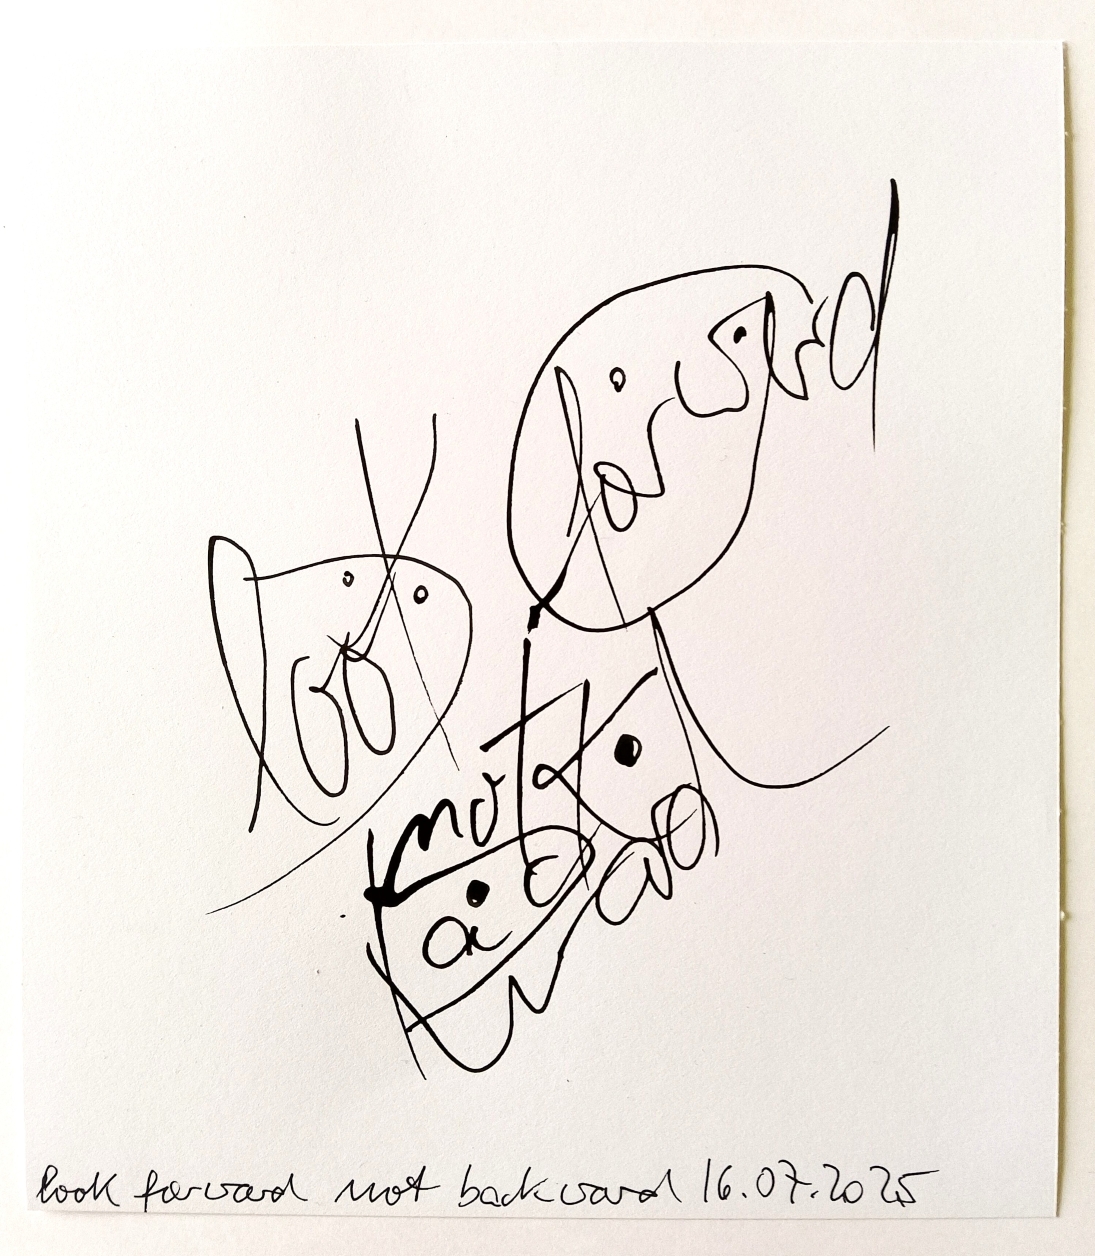 look
forward
not
backward
look forward not backward 16.07.2025